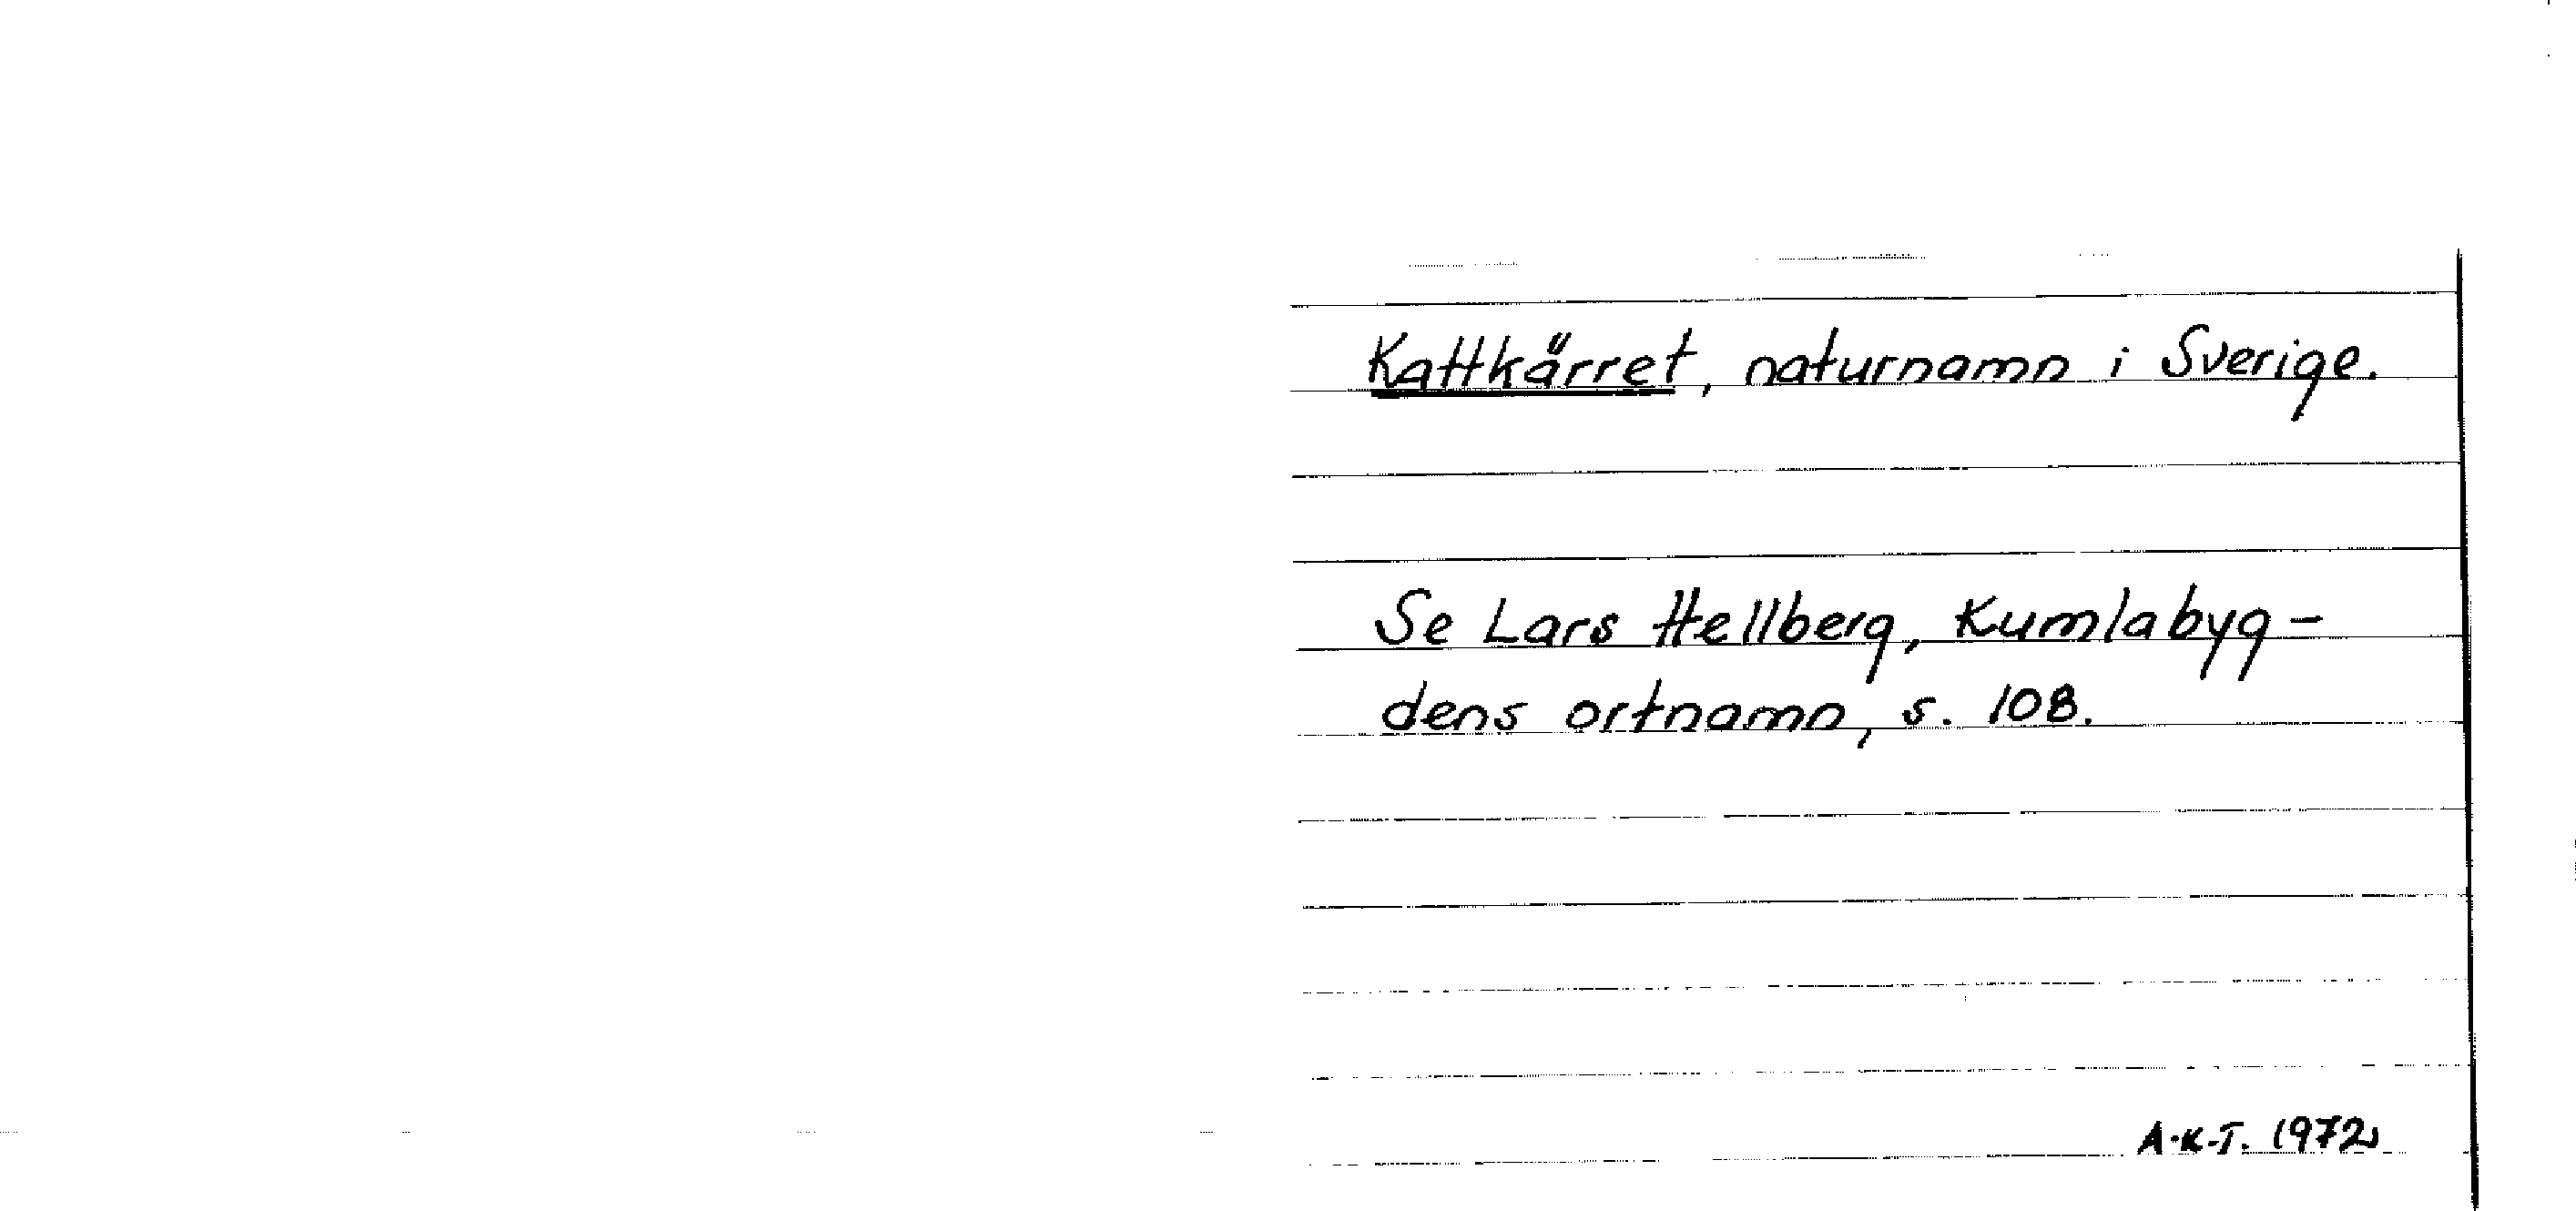 Kattkärret, naturnamn i Sverige.
Se Lars Hellberg, Kumlabyg-
dens ortnamn, s. 108.
A-K-T. 1972